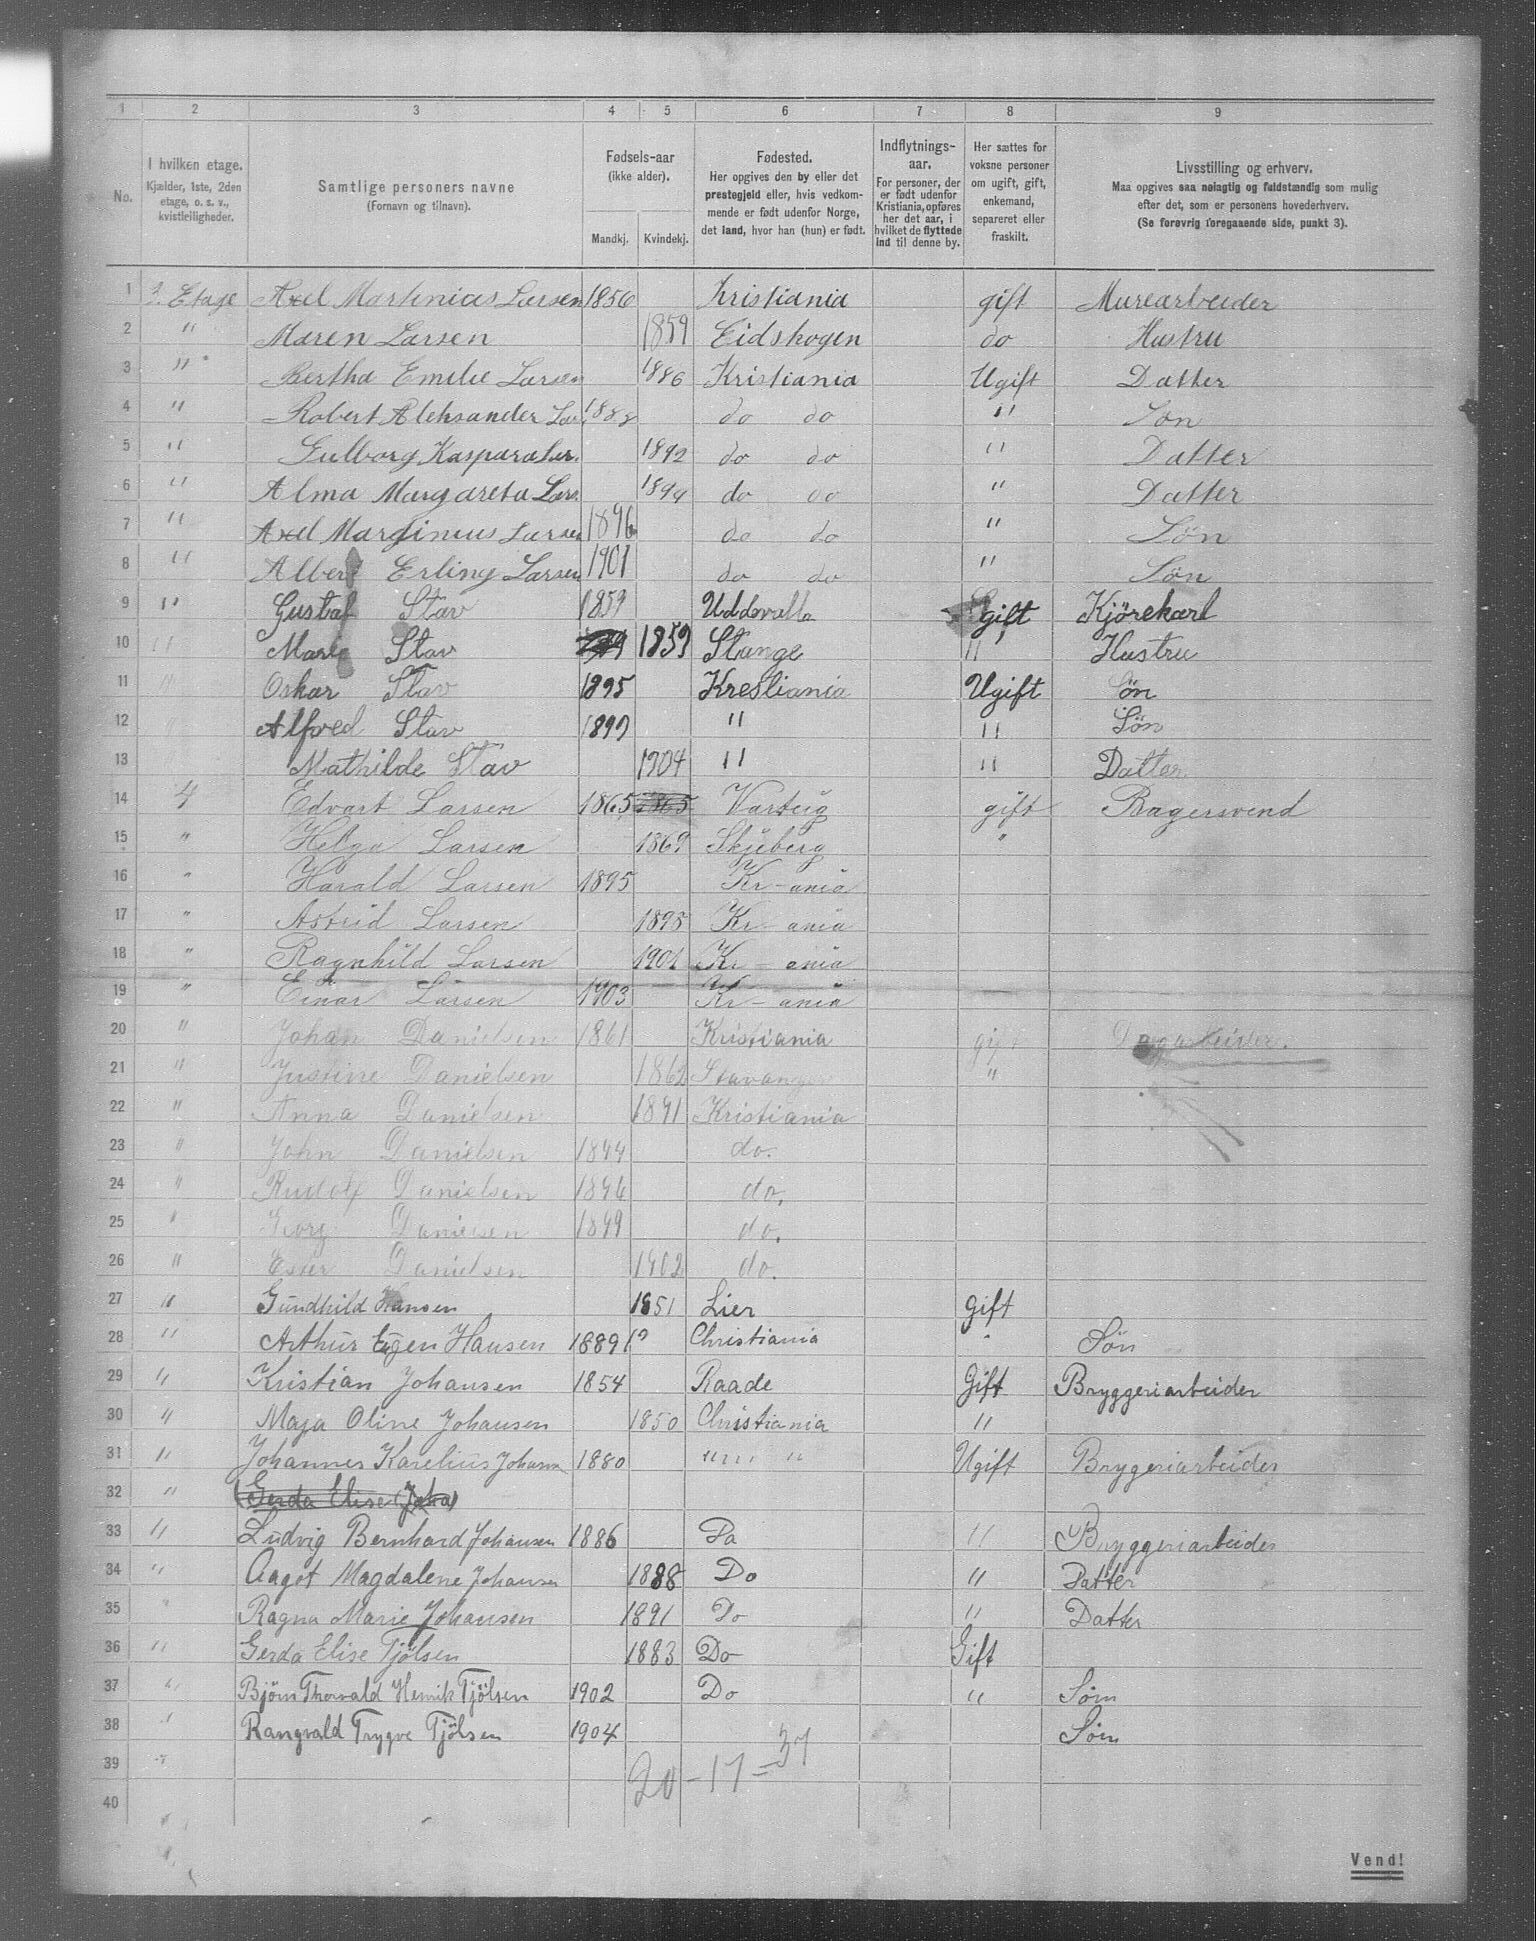 1 2 3 4 5 6 7 8 9
No. | I hvilken etage. Kjælder, 1ste, 2den etage, o. s. v., kvistleiligheder. | Samtlige personers navne (Fornavn og tilnavn). | Fødsels-aar (ikke alder). Mandkj. Kvindekj. | Fødested. Her opgives den by eller det prestegjeld eller, hvis vedkommende er født udenfor Norge, det land, hvor han (hun) er født. | Indflytnings-aar. For personer, der er født udenfor Kristiania, opføres her det aar, i hvilket de flyttede ind til denne by. | Her sættes for voksne personer om ugift, gift, enkemand, separeret eller fraskilt. | Livsstilling og erhverv. Maa opgives saa nøiagtig og fuldstændig som mulig efter det, som er personens hovederhverv. (Se forøvrig foregaaende side, punkt 3).
1 3. Etage Axel Martinias Larsen 1856 Kristiania gift Murearbeider
2 " Maren Larsen 1859 Eidskogen do Hustru
3 " Bertha Emilie Larsen 1886 Kristiania Ugift Datter
4 " Robert Aleksander Lar. 1888 do do " Søn
5 " Gulborg Kaspara Lar. 1892 do do " Datter
6 " Alma Margareta Lars. 1894 do do " Datter
7 " Axel Marginius Larsen 1896 do do " Søn
8 " Albert Erling Larsen 1901 do do " Søn
9 " Gustaf Stav 1859 Uddevalla gift Kjörekarl
10 " Marie Stav 1859 Stange " Hustru
11 " Oskar Stav 1895 Krestiania Ugift Søn
12 Alfred Stav 1899 " " Sön
13 Mathilde Stav 1904 " " Datter
14 4 Edvart Larsen 1865 1865 Varteig gift Bagersvend
15 " Helga Larsen 1869 Skjeberg "
16 " Harald Larsen 1895 Kr-ania
17 " Astrid Larsen 1895 Kr-ania
18 " Ragnhild Larsen 1901 Kr-ania
19 " Einar Larsen 1903 Kr-ania
20 " Johan Danielsen 1861 Kristiania gift Dagarbeider.
21 " Justine Danielsen 1862 Stavanger "
22 " Anna Danielsen 1891 Kristiania
23 " John Danielsen 1894 do.
24 " Rudolf Danielsen 1896 do.
25 " Georg Danielsen 1899 do.
26 " Ester Danielsen 1902 do.
27 " Gundhild Hansen 1851 Lier Gift
28 " Arthur Eugen Hansen 1889 Christiania " Sön
29 " Kristian Johansen 1854 Raade Gift Bryggeriarbeider
30 " Maja Oline Johansen 1850 Christiania "
31 " Johannes Karelius Johansen 1880 " " " Ugift Bryggeriarbeider
32 " (Gerda Elise (Joha)
33 " Ludvig Bernhard Johansen 1886 Do " Bryggeriarbeider
34 " Aagot Magdalene Johansen 1888 Do " Datter
35 " Ragna Marie Johansen 1891 Do " Datter
36 " Gerda Elise Tjölsen 1883 Do Gift
37 " Björn Thorvald Henrik Tjölsen 1902 Do " Sön
38 " Rangvald Trygve Tjölsen 1904 Sön
39 "
20 - 17 = 37
40
Vend!